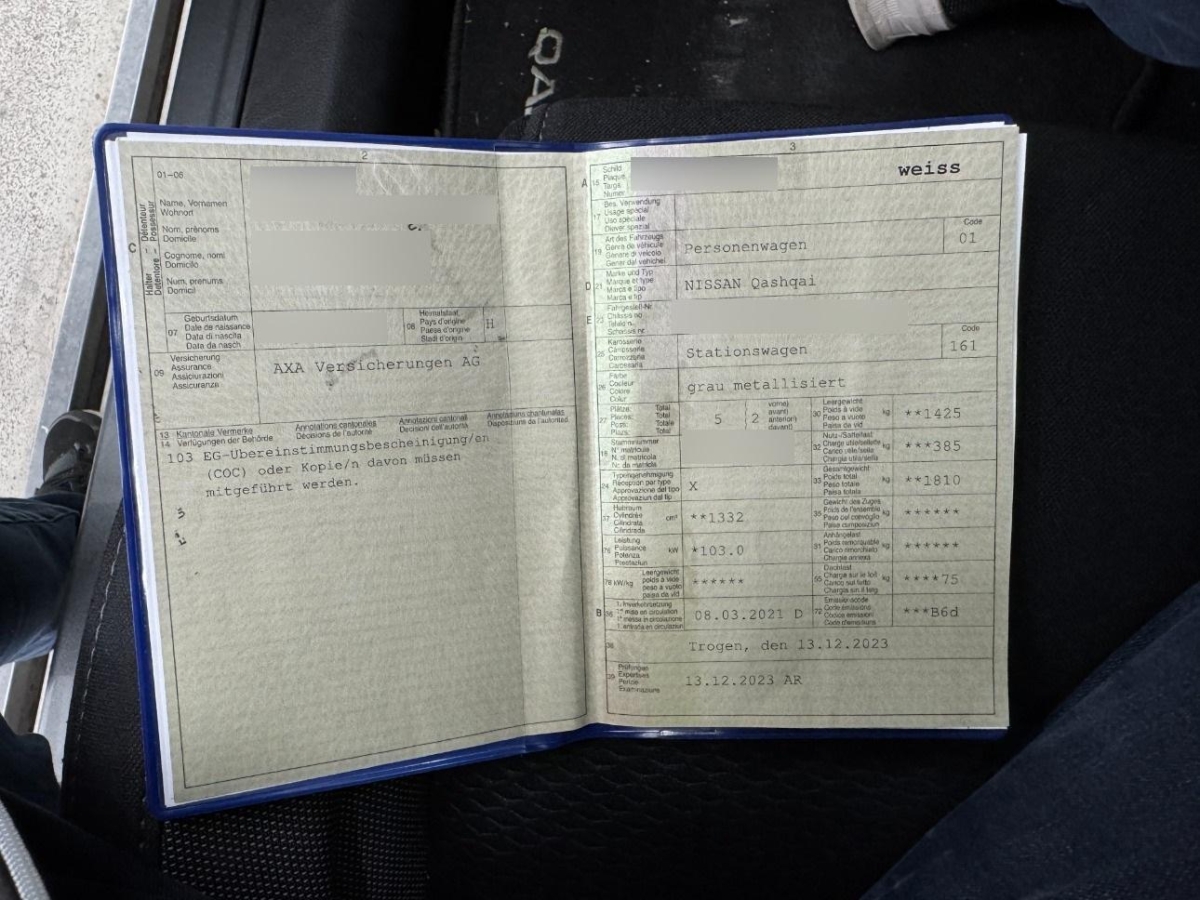 QA
2
01-06
Halter - Détenteur
Detentore - Possessur
C
Name, Vornamen
Wohnort
Nom, prénoms
Domicile
Cognome, nomi
Domicilio
Num, prenums
Domicil
07
Geburtsdatum
Date de naissance
Data di nascita
Data da nasch.
08
Heimatstaat
Pays d'origine
Paese d'origine
Stadi d'origin
H
09
Versicherung
Assurance
Assicurazioni
Assicuranza
AXA Versicherungen AG
13 Kantonale Vermerke
14 Verfügungen der Behörde
Annotations cantonales
Décisions de l'autorité
Annotazioni cantonali
Decisioni dell'autorità
Annotaziuns chantunalas
Disposiziuns da l'autoritad
103 EG-Übereinstimmungsbescheinigung/en
(COC) oder Kopie/n davon müssen
mitgeführt werden.
3
A
15
Schild
Plaque
Targa
Numer
weiss
17
Bes. Verwendung
Usage spécial
Uso speciale
Diever spezial
19
Art des Fahrzeugs
Genre de véhicule
Genere di veicolo
Gener dal vehichel
Personenwagen
Code
01
D
21
Marke und Typ
Marque et type
Marca e tipo
Marca e tip
NISSAN Qashqai
E
23
Fahrgestell-Nr.
Châssis no
Telaio n.
Schassis nr.
25
Karosserie
Carrosserie
Carrozzeria
Carossaria
Stationswagen
Code
161
26
Farbe
Couleur
Colore
Colur
grau metallisiert
27
Plätze: Total
Places: Total
Posti: Totale
Plazs: Total
5
2
vorne)
avant)
anteriori)
davant)
30
Leergewicht
Poids à vide
Peso a vuoto
Paisa da vid
kg
**1425
18
Stammnummer
N° matricule
N. di matricola
Nr. da matricla
32
Nutz-/Sattellast
Charge utile/sellette
Carico utile/sella
Chargia utila/sella
kg
***385
24
Typengenehmigung
Réception par type
Approvazione del tipo
Approvaziun dal tip
X
33
Gesamtgewicht
Poids total
Peso totale
Paisa totala
kg
**1810
37
Hubraum
Cylindrée
Cilindrata
Cilindrada
cm³
**1332
35
Gewicht des Zuges
Poids de l'ensemble
Peso del convoglio
Paisa cumposiziun
kg
******
76
Leistung
Puissance
Potenza
Prestaziun
kW
*103.0
31
Anhängelast
Poids remorquable
Carico rimorchiato
Chargia annexa
kg
******
78 kW/kg
Leergewicht
poids à vide
peso a vuoto
paisa da vid
******
55
Dachlast
Charge sur le toit
Carico sul tetto
Chargia sin il tetg
kg
****75
B
36
1. Inverkehrsetzung
1re mise en circulation
1a messa in circolazione
1. entrada en circulaziun
08.03.2021 D
72
Emissionscode
Code émissions
Codice emissioni
Code d'emissiuns
***B6d
38
Trogen, den 13.12.2023
39
Prüfungen
Expertises
Perizie
Examinaziuns
13.12.2023 AR